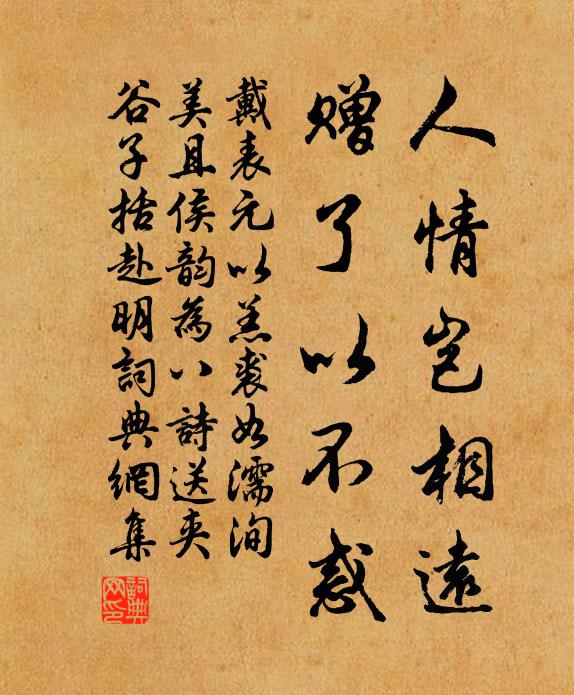 人情豈相遠
贈了以不惑
戴表元以羔裘如濡洵
美且侯韻為八詩送夾
谷子括赴明詞典網集
詞典网印